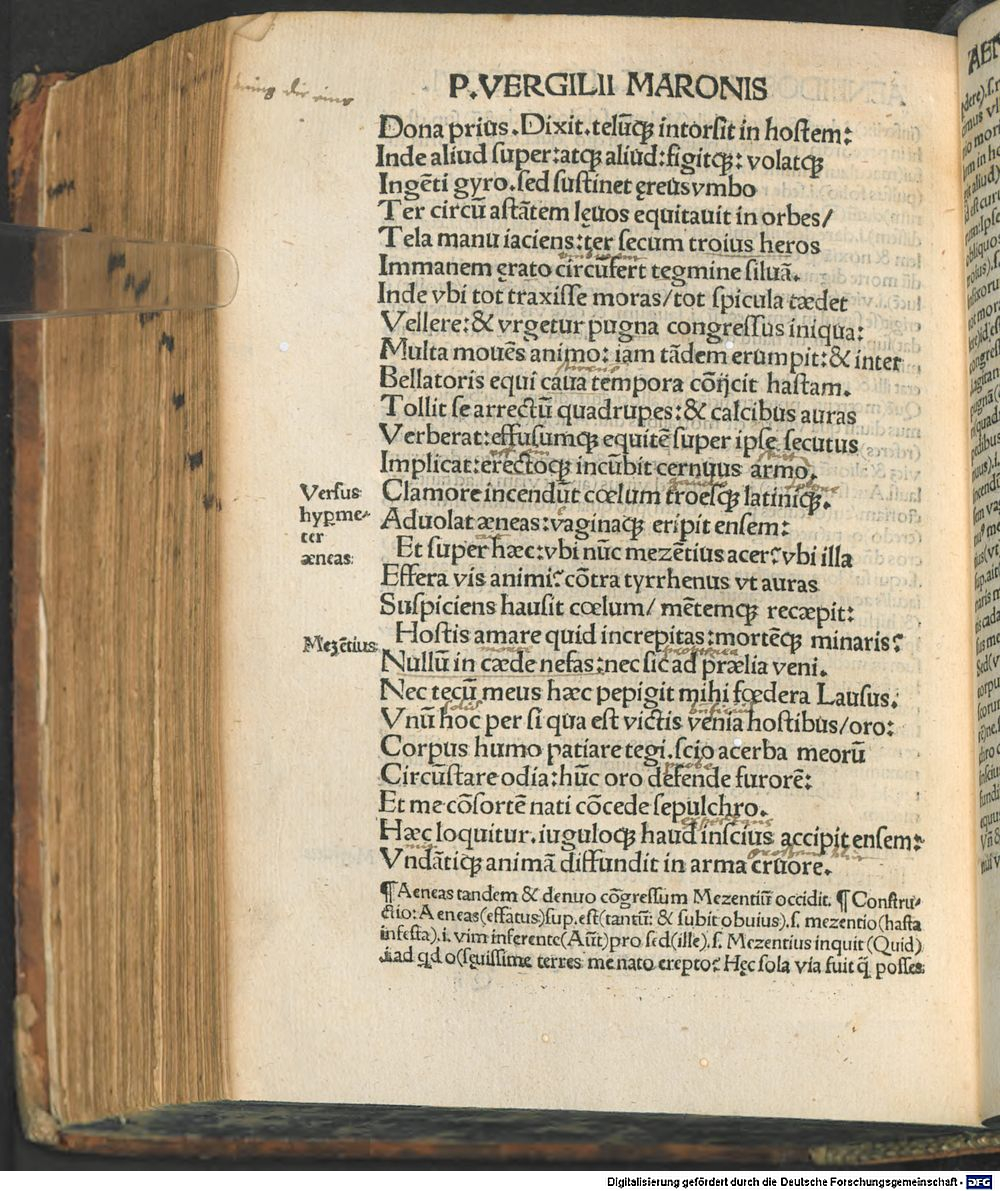 P. VERGILII MARONIS
Dona prius. Dixit. telūq; intorsit in hostem:
Inde aliud super: atq; aliud: figitq;: volatq;
Ingēti gyro. sed sustinet ęreus vmbo
Ter circū astātem lęuos equitauit in orbes/
Tela manu iaciens: ter secum troius heros
Immanem ęrato circūfert tegmine siluā.
Inde vbi tot traxisse moras/ tot spicula tædet
Vellere: & vrgetur pugna congressus iniqua:
Multa mouēs animo: iam tādem erumpit: & inter
Bellatoris equi caua tempora cōijcit hastam.
Tollit se arrectū quadrupes: & calcibus auras
Verberat: effusumq; equitē super ipse secutus
Implicat: erectoq; incūbit cernuus armo.
Versus hypme-
ter
Clamore incendūt cœlum troesq; latiniq;.
Aduolat æneas: vaginaq; eripit ensem:
æneas.
Et super hæc: vbi nūc mezētius acer? vbi illa
Effera vis animi? cōtra tyrrhenus vt auras
Suspiciens hausit cœlum/ mētemq; recæpit:
Mezētius.
Hostis amare quid increpitas: mortēq; minaris?
Nullū in cæde nefas: nec sic ad prælia veni.
Nec tecū meus hæc pepigit mihi fœdera Lausus.
Vnū hoc per si qua est victis venia hostibus/ oro:
Corpus humo patiare tegi. scio acerba meorū
Circūstare odia: hūc oro defende furorē:
Et me cōsortē nati cōcede sepulchro.
Hæc loquitur. iuguloq; haud inscius accipit ensem:
Vndātiq; animā diffundit in arma cruore.
¶ Aeneas tandem & denuo cōgressum Mezentiū occidit. ¶ Constru-
ctio: Aeneas (effatus) sup. est (tantū: & subit obuius). s. mezentio (hasta
infesta). i. vim inferente (Aūt) pro sed (ille). s. Mezentius inquit (Quid)
.i. ad qd o (sęuissime terres me nato erepto? Hęc sola via fuit q̄ posses
Digitalisierung gefördert durch die Deutsche Forschungsgemeinschaft - DFG